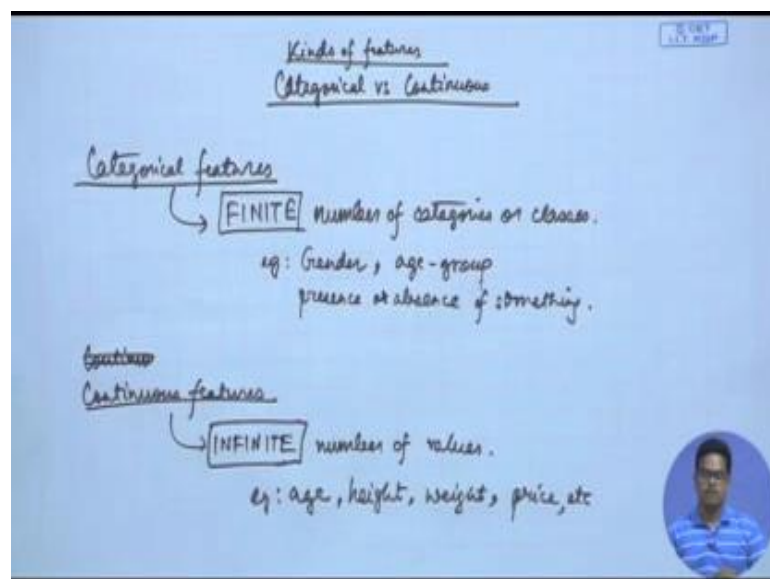 Kinds of features
Categorical vs Continuous
Categorical features
FINITE number of categories or classes.
eg: Gender, age-group
presence or absence of something.
Continuous features.
INFINITE number of values.
eg: age, height, weight, price, etc